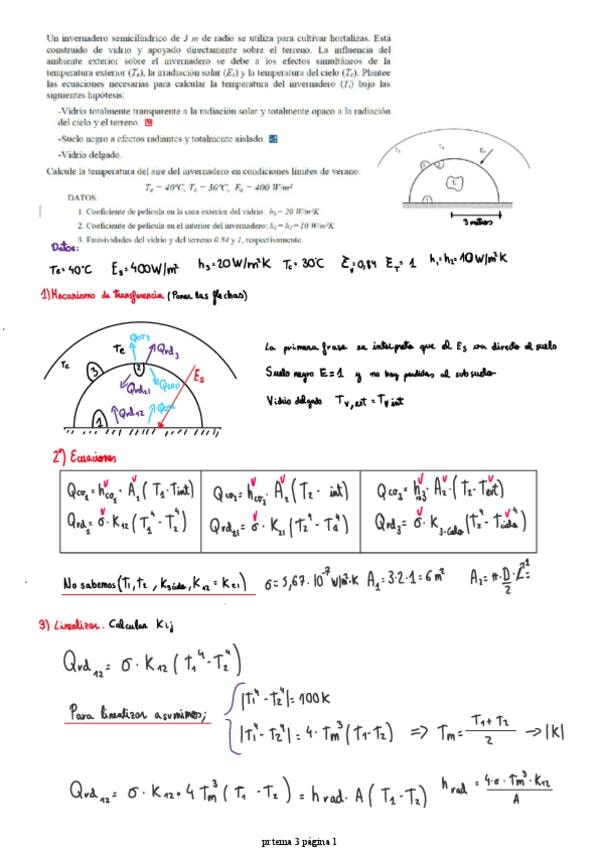 Un invernadero semicilíndrico de 3 m de radio se utiliza para cultivar hortalizas. Está
construido de vidrio y apoyado directamente sobre el terreno. La influencia del
ambiente exterior sobre el invernadero se debe a los efectos simultáneos de la
temperatura exterior (Te), la irradiación solar (Es) y la temperatura del cielo (Tc). Plantee
las ecuaciones necesarias para calcular la temperatura del invernadero (Ti) bajo las
siguientes hipótesis:
-Vidrio totalmente transparente a la radiación solar y totalmente opaco a la radiación
del cielo y el terreno.
-Suelo negro a efectos radiantes y totalmente aislado.
-Vidrio delgado.
Calcule la temperatura del aire del invernadero en condiciones límites de verano:
Te = 40ºC, Tc = 30ºC, Es = 400 W/m²
DATOS:
1. Coeficiente de película en la cara exterior del vidrio: h3 = 20 W/m²K
2. Coeficiente de película en el interior del invernadero: h1 = h2 = 10 W/m²K
3. Emisividades del vidrio y del terreno 0.84 y 1, respectivamente
Tc
Te
Es
Ti
1
3 metros
Datos:
Te = 40°C Es = 400W/m² h3 = 20W/m²K Tc = 30°C Ev = 0,84 ET = 1 h1 = h2 = 10W/m²K
1) Mecanismo de transferencia (Poner las flechas)
Tc
3
Te
Qco3
Qrd3
2
Qrd21
Qco2
Es
1
Qrd12
La primera frase se interpreta que el Es va directo al suelo
Suelo negro E = 1 y no hay perdidas al subsuelo
Vidrio delgado Tv,ext = Tv int
2º) Ecuaciones
Qco1 = hco1 · A1 (T1 - Tint)
Qco2 = hco2 · A2 (T2 - int)
Qco3 = h3 · A2 · (T2 - Text)
Qrd1 = σ · K12 (T1⁴ - T2⁴)
Qrd21 = σ · K21 (T2⁴ - T1⁴)
Qrd3 = σ · K3-cielo (T2⁴ - Tcielo⁴)
No sabemos (T1, T2, K3cielo, K12 = K21) σ = 5,67 · 10⁻⁷ W/m²·K A1 = 3·2·1 = 6 m² A2 = π · D/2 · L =
3) Linealizar. Calcular Kij
Qrd12 = σ · K12 (T1⁴ - T2⁴)
Para linealizar asumimos;
|T1⁴ - T2⁴| = 100K
|T1⁴ - T2⁴| = 4 · Tm³ (T1 - T2) => Tm = T1 + T2 / 2 → |K|
Qrd12 = σ · K12 · 4 Tm³ (T1 - T2) = hrad · A (T1 - T2) hrad = 4·σ·Tm³·K12 / A
prtema 3 página 1